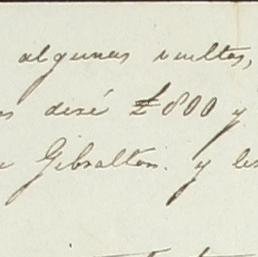 algunas vueltas,
diré £800 y
Gibraltar. y